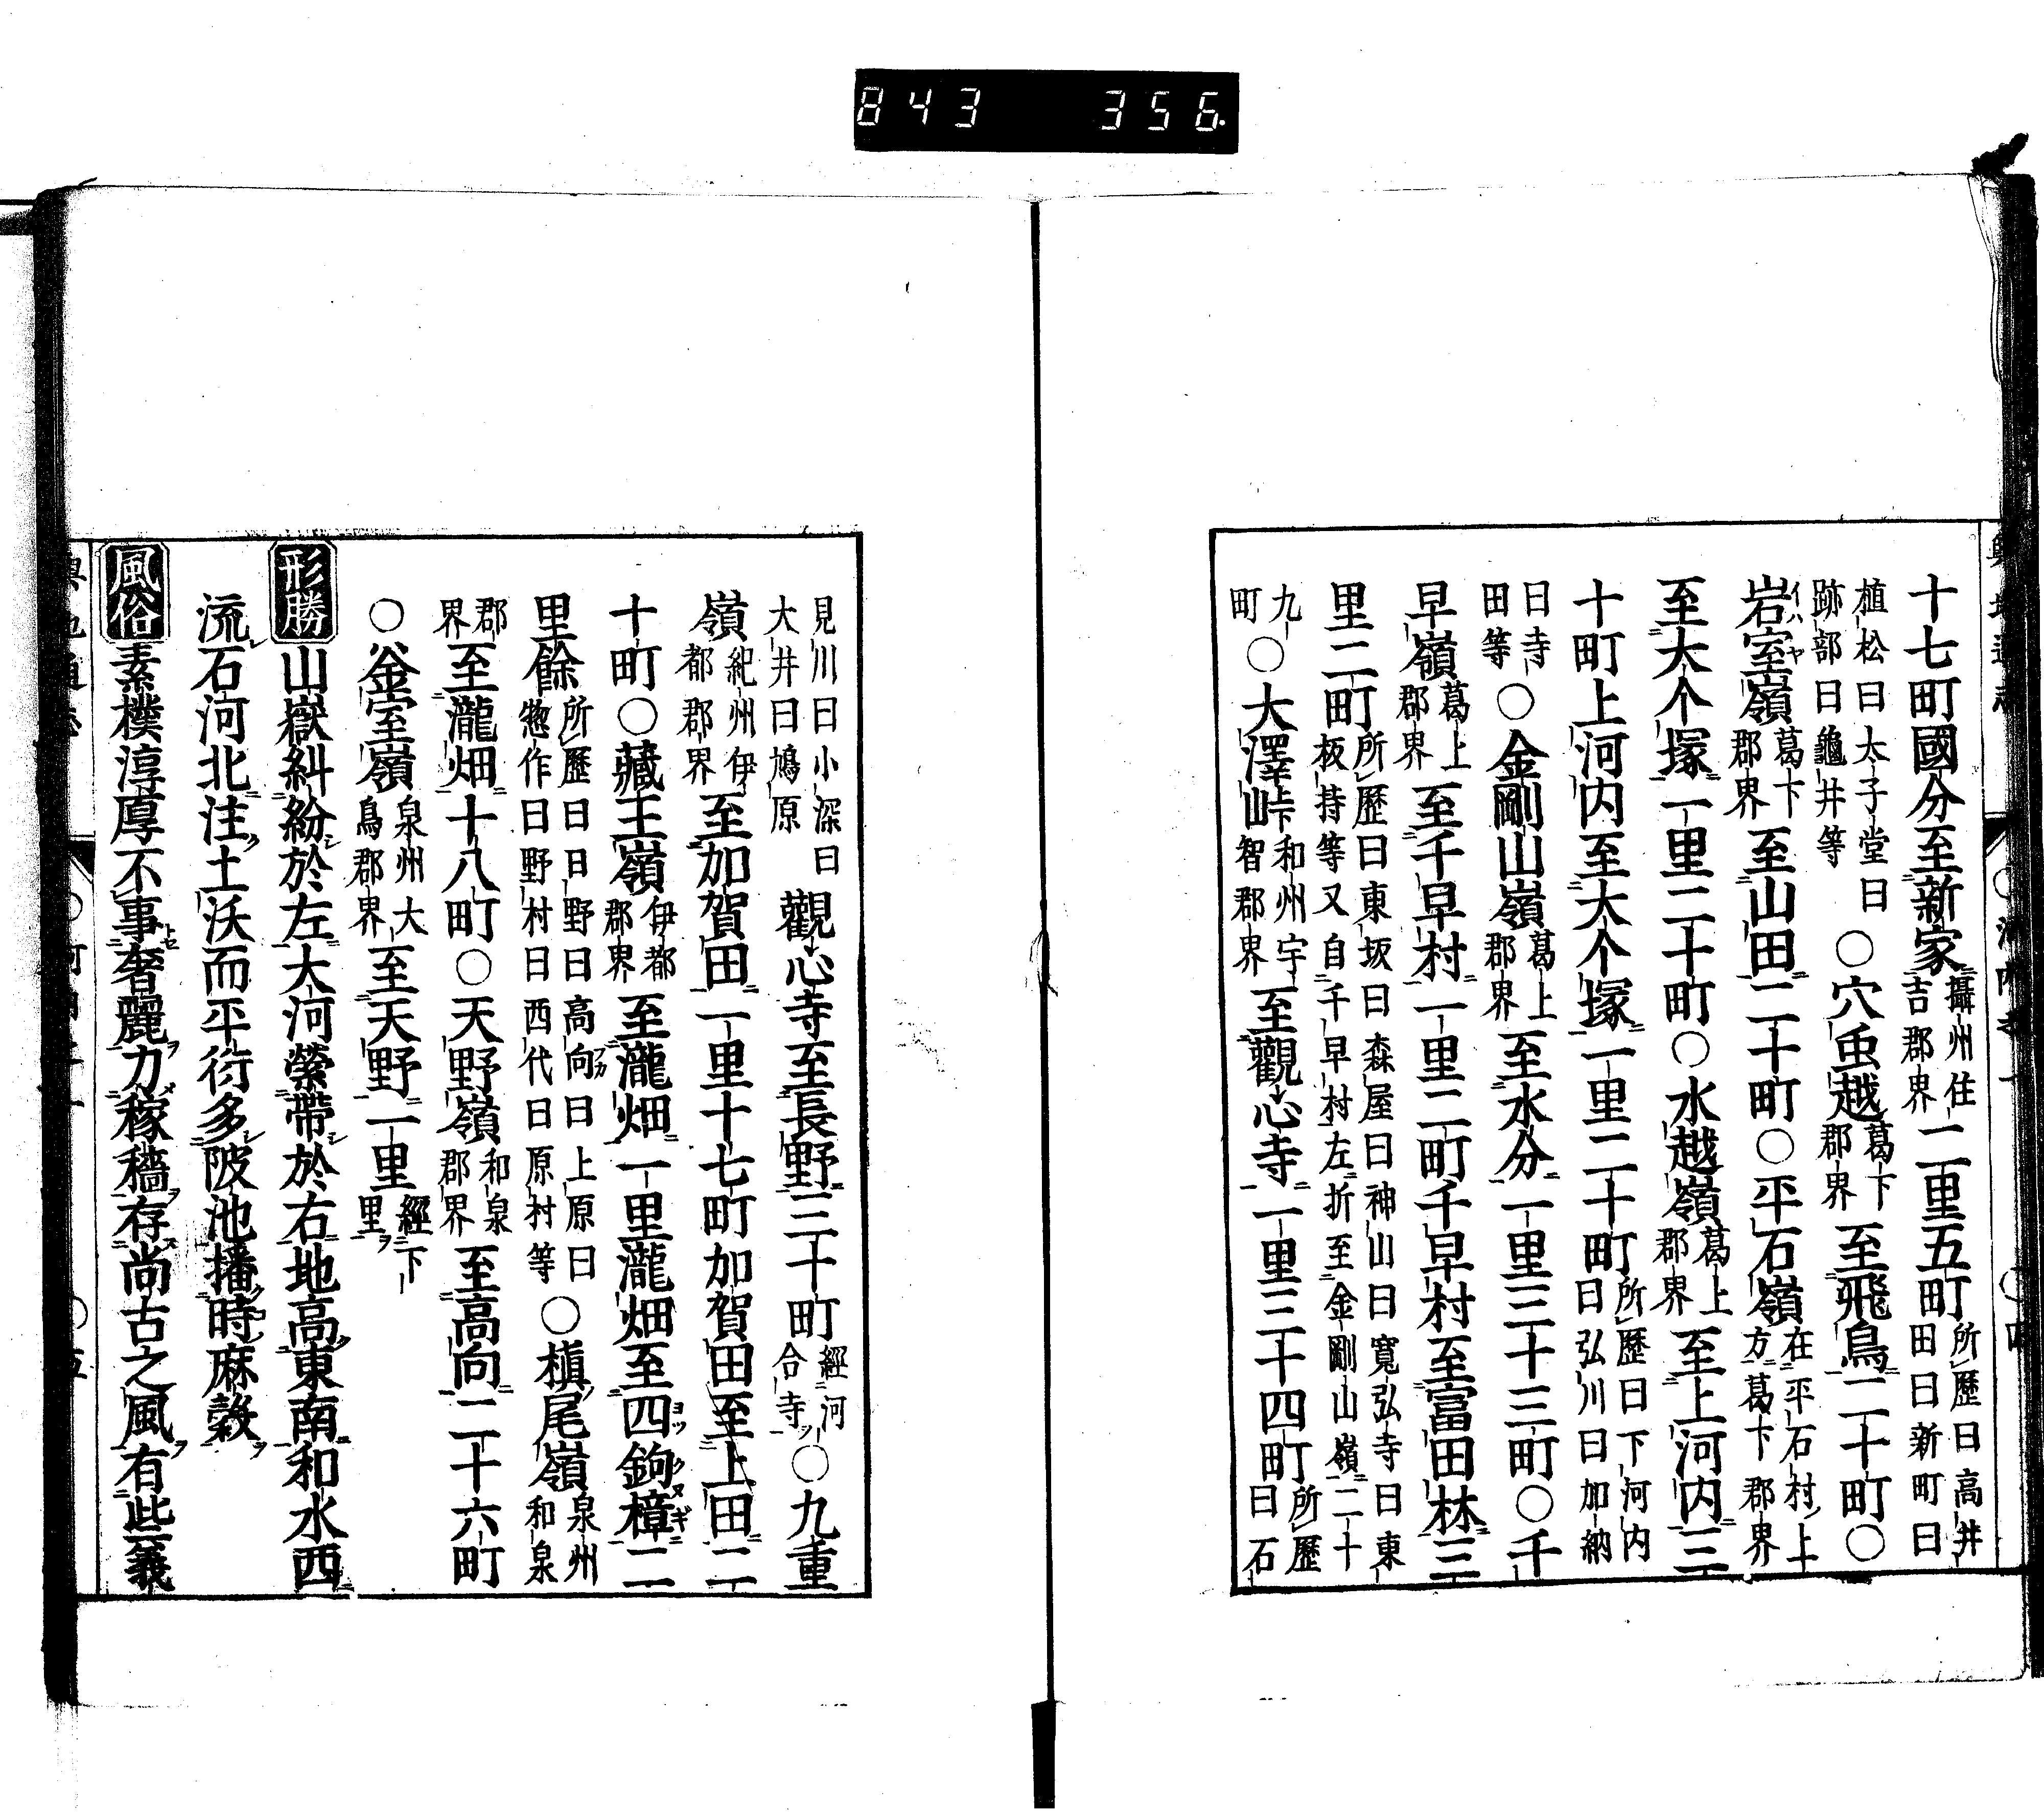 843 356
十七町國分至新家攝州住吉郡界二里五町所歷曰高井田曰新町曰
植松曰太子堂曰跡部曰龜井等○穴虫越葛下郡界至飛鳥二十町○
岩室嶺葛下郡界至山田二十町○平石嶺在平石村上方葛下郡界
至大个塚一里二十町○水越嶺葛上郡界至上河内三
十町上河内至大个塚一里二十町所歷曰下河内曰弘川曰加納
曰寺田等○金剛山嶺葛上郡界至水分一里三十三町○千
早嶺葛上郡界至千早村一里二町千早村至富田林三
里二町所歷曰東坂曰森屋曰神山曰寬弘寺曰東板持等又自千早村左折至金剛山嶺二十
九町○大澤峠和州宇智郡界至觀心寺一里三十四町所歷曰石
見川曰小深曰大井曰鳩原觀心寺至長野三十町經河合寺○九重
嶺紀州伊都郡界至加賀田一里十七町加賀田至上田二
十町○藏王嶺伊都郡界至瀧畑一里瀧畑至四鉤樟二
里餘所歷曰日野曰高向曰上原曰惣作曰野村曰西代曰原村等○槇尾嶺泉州和泉
郡界至瀧畑十八町○天野嶺和泉郡界至高向二十六町
○釜室嶺泉州大鳥郡界至天野一里經下里
形勝山嶽糾紛於左大河縈帶於右地高東南和水西
流石河北注土沃而平衍多陂池播時麻穀
風俗素樸淳厚不事奢麗力稼穡存尚古之風有些義